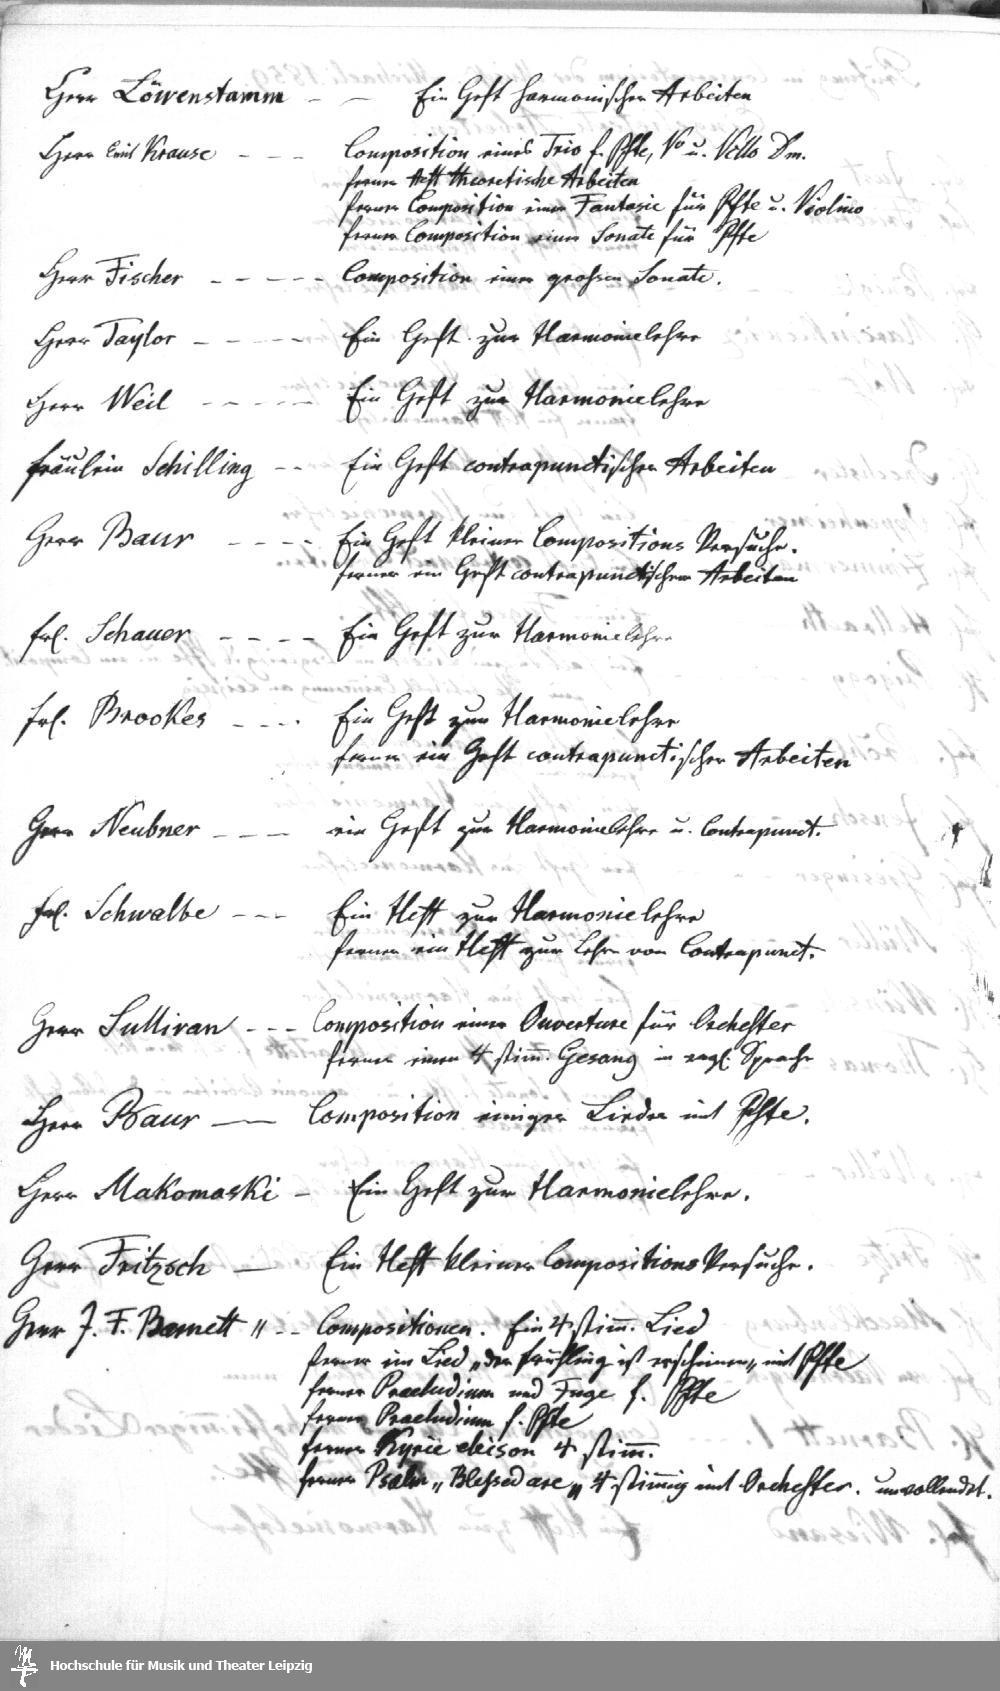 Herr Löwenstamm - - Ein Heft harmonischer Arbeiten
Herr Emil Krause - - - Composition eines Trio f. Pfte, Vo u. Vcllo Dm.
ferner Heft theoretische Arbeiten
ferner Composition einer Fantasie für Pfte u. Violino
ferner Composition einer Sonate für Pfte
Herr Fischer - - - - - Composition einer grossen Sonate.
Herr Taylor - - - - - Ein Heft zur Harmonielehre
Herr Weil - - - - - Ein Heft zur Harmonielehre
Fräulein Schilling - - Ein Heft contrapunctischer Arbeiten
Herr Baur - - - - Ein Heft kleiner Compositions Versuche.
ferner ein Heft contrapunctischer Arbeiten
Frl. Schauer - - - - Ein Heft zur Harmonielehre
Frl. Brookes - - - - Ein Heft zur Harmonielehre
ferner ein Heft contrapunctischer Arbeiten
Herr Neubner - - - ein Heft zur Harmonielehre u. Contrapunct.
Frl. Schwalbe - - - Ein Heft zur Harmonielehre
ferner ein Heft zur Lehre vom Contrapunct.
Herr Sullivan - - - Composition einer Ouverture für Orchester
ferner einen 4 stim̅. Gesang in engl. Sprache
Herr Baur — Composition einiger Lieder mit Pfte.
Herr Makomaski - Ein Heft zur Harmonielehre.
Herr Fritzsch — Ein Heft kleiner Compositions Versuche.
Herr J. F. Barnett II - - Compositionen. Ein 4 stim̅. Lied
ferner ein Lied „der Frühling ist erschienen„ mit Pfte
ferner Praeludium und Fuge f. Pfte
ferner Praeludium f. Pfte
ferner Kyrie eleison 4 stim̅.
ferner Psalm „Blessed are„ 4 stim̅ig mit Orchester. unvollendet.
Hochschule für Musik und Theater Leipzig